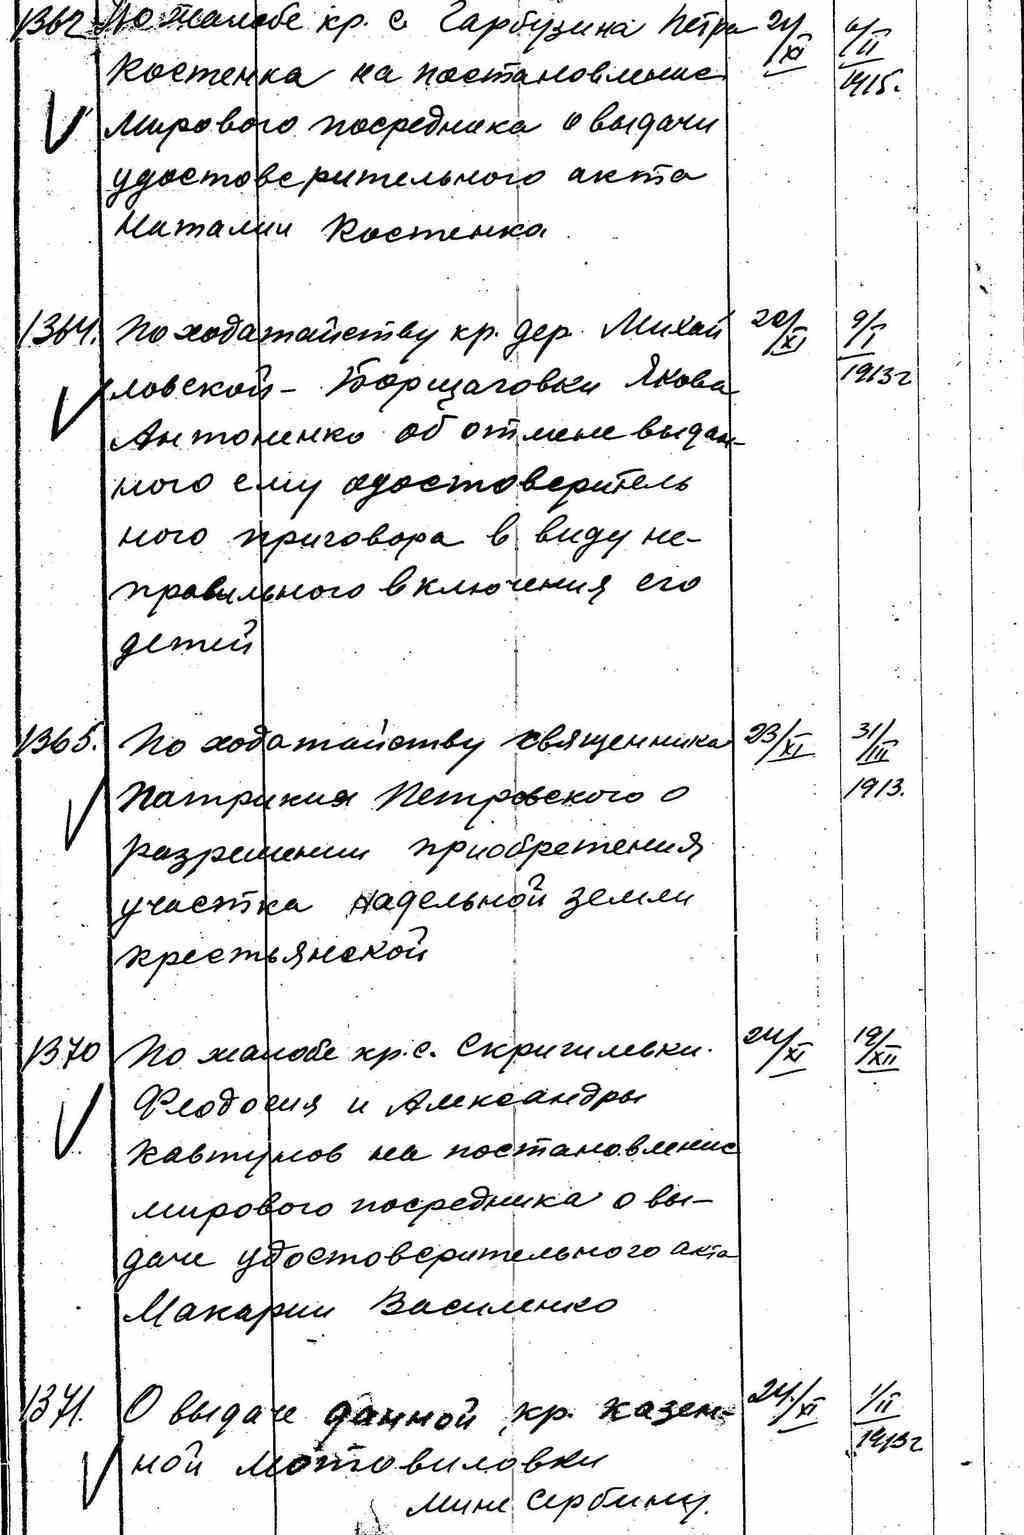 1362 По жалобе кр. с. Гарбузина Петра 21/XI 6/II
Костенка на постановление 1915.
Мирового посредника о выдачи
удостоверительного акта
Наталии Костенка
1364. По ходатайству кр. дер. Михай 20/XI 9/I
ловской- Борщаговки Якова 1913 г
Антоненко об отмене выдан-
ного ему удостоверитель
ного приговора в виду не-
правильного включения его
детей
1365. По ходатайству священника 23/XI 31/III
Патрикия Петровского о 1913.
разрешении приобретения
участка надельной земли
крестьянской
1370 По жалобе кр. с. Скригилевки. 24/XI 19/XII
Феодосия и Александры
Кавтунов на постановление
мирового посредника о вы-
даче удостоверительного акта
Макарии Василенко
1371. О выдаче данной кр. Казен- 24/XI 1/II
ной Мотовиловки 1913 г
Мине Сербину.